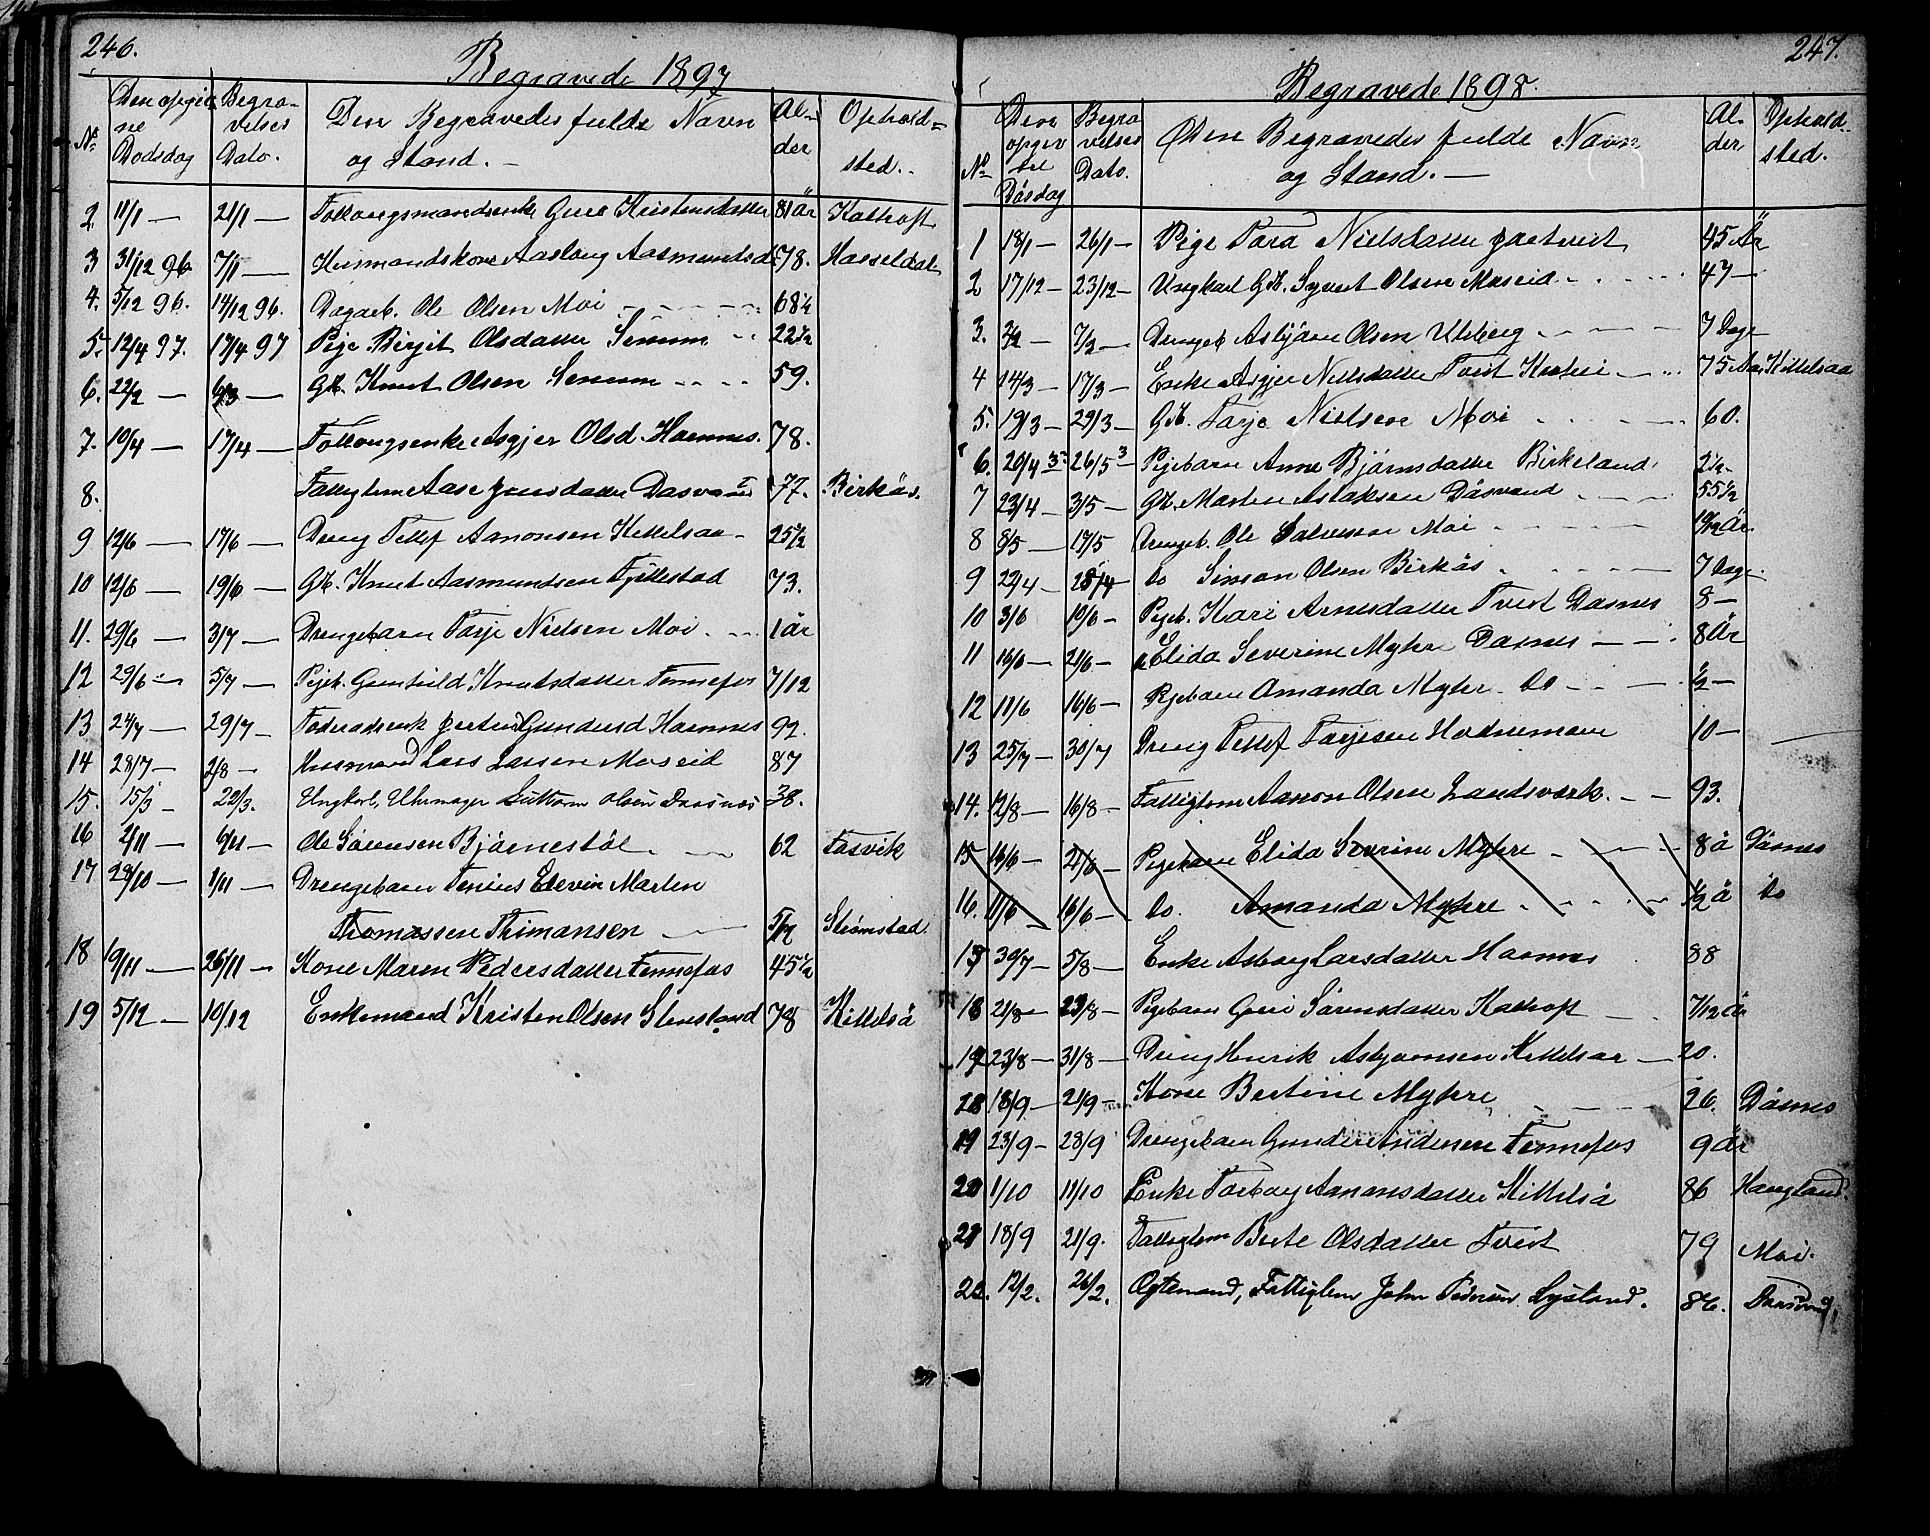 246.
Begravede 1897
No
Den opgivne Dødsdag
Begravelses Dato.
Den Begravedes fulde Navn og Stand. –
Alder
Opholdsted.
2. 11/1 — 21/1 — Kristensdatter 81 år Kalhoft
3 31/12 96. 7/1 — Husmandskone Aaslaug Aasmundsd. 78. Hasseldal
4. 5/12 96. 14/12 96. Dagarb. Ole Olsen Moi 68 1/2
5. 12/4 97. 17/4 97 Pige Birgit Olsdatter Senum 22 1/2
6. 22/2 — Gbr. Knut Olsen Senum 59.
7. 10/4 — 17/4 — Asgjer Olsd. Haennes. 78.
8. Fattiglem Aase Jensdatter Dasvand 77. Birkås.
9 12/6 — 17/6 — Dreng Tellef Aanonsen Kittelsaa 25 1/2
10 12/6 — 19/6 — Gbr. Knut Aasmundsen Fjellestad 73.
11. 29/6 — 3/7 — Drengebarn Tarje Nielsen Moi. 1 år
12 29/6 — 5/7 — Pigeb. Gunhild Knutsdatter Fennefos 7/12
13 24/7 — 29/7 — Gundersd Haennes 92.
14 28/7 — 2/8 — Husmand Lars Larsen Moseid 87
15. 15/3 — 22/3. Ungkarl, Uhrmager Guttorm Olsen Daasnes 38.
16 2/11 — 6/11 — Ole Sørensen Bjørnestøl 62 Fasvik
17 28/10 — 1/11 — Drengebarn Tenius Edevin Martin
Thomassen Thimansen 5/12 Strømstad.
18 19/11 — 26/11 — Kone Maren Pedersdatter Fennefos 45 1/2
19 5/12 — 10/12 Enkemand Kristen Olsen Stenstand 78 Kittilså
247.
Begravede 1898.
No
Den opgivne Dösdag
Begravelses Dato.
Den Begravedes fulde Navn og Stand. —
Alder
Opholdsted.
1 18/1 — 26/1 — Pige Tara Nielsdatter 45 År
2 17/12 — 23/12 — Ungkarl Gbr. Syvert Olsen Moseid 47 —
3. 2/2 — 7/2 — Drengeb Asbjørn Olsen Uleberg 7 Dage
4 14/3 — 17/3 — Enke Asgjer Nielsdatter Tveit 75 Aar Kittelsaa
5. 19/3 — 29/3 — Gbr. Tarje Nielsen Moi 60.
6. 20/4 26/5 — Pigebarn Anne Bjørnsdatter Birkeland 2 1/2
7 23/4 — 3/5 — Gbr. Marten Aslaksen Dåsvand 55 1/2
8 8/5 — 17/5 Drengeb. Ole Salvesen Moi År.
9 22/4 — 28/4 — do Simon Olsen Birkås. 7 Dage
10 3/6 10/6 — Pigeb. Kari Arnesdatter Tveit Dasnes 8 —
11 16/6 — 21/6 — Elida Severine Myhre Dasnes 8 År
12 11/6 16/6 — Pigebarn Amanda Myhre do 1/2 —
13 25/7 — 30/7 Dreng Tellef Tarjesen Hodnemoen 10 —
14. 12/8 — 16/8 — Fattiglem Aanon Olsen Landsværk. 93.
15 16/6 — 21/6 — Pigebarn Elida Severine Myhre 8 å Dåsnes
16. 11/6 16/6 — do. Amanda Myhre 1/2 å do
15 30/7 — 5/8 — Enke Asborg Larsdatter Haennes 88
16 21/8 — 23/8 — Pigebarn Guri Sørensdatter Kalhoft 7/12 år
17 23/8 — 31/8 — Dreng Henrik Asbjørnsen Kittelsaa 20.
18 18/9 — 21/9 — Kone Bertine Myhre 26. Dåsnes
19 23/9 — 28/9 Drengebarn Gunder Andersen Fennefos 9 År
20 1/10 11/10 Enke Torborg Aanonsdatter Kittilså 86 Haugland.
21 18/9 21/9. Fattiglem Birte Olsdatter Tveit 79 Moi.
22. 12/2. 26/2. Ægtemand, Fattiglem John Pedersen Lysland. 86. Daasvand